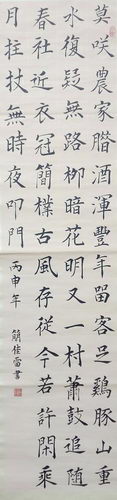 莫咲農家臘酒渾豐年留客足鷄豚山重
水復疑無路柳暗花明又一村蕭鼓追隨
春社近衣冠簡樸古風存從今若許閑乘
月拄杖無時夜叩門
丙申年
簡佳雷書